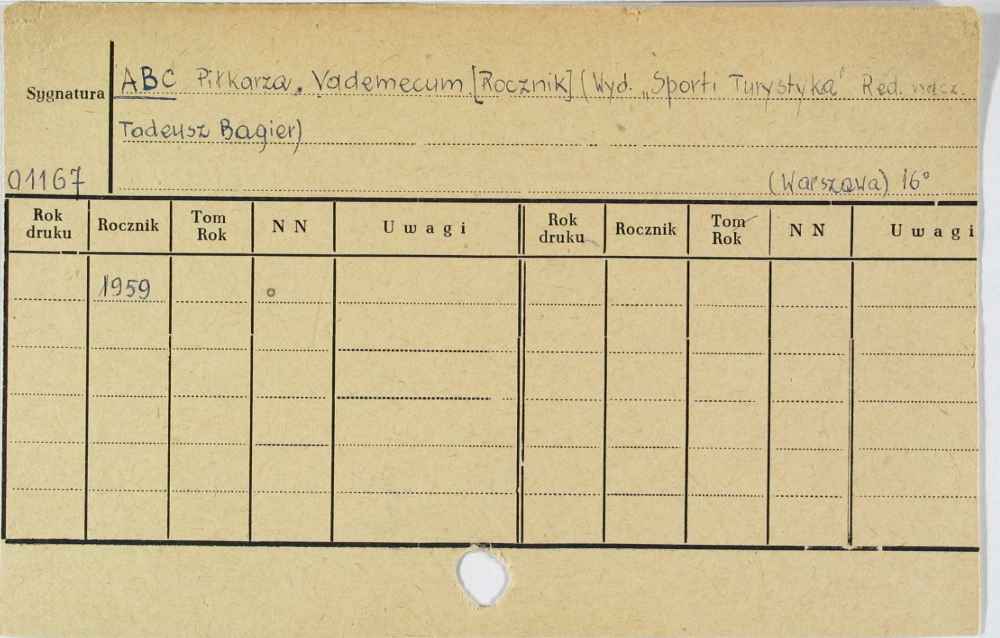 ABC Piłkarza. Vademecum. [Rocznik] (Wyd. "Sport i Turystyka" Red. nacz.
Sygnatura
Tadeusz Bagier)
01167
(Warszawa) 16°
Rok druku Rocznik Tom Rok NN Uwagi Rok druku Rocznik Tom Rok NN Uwagi
1959 o